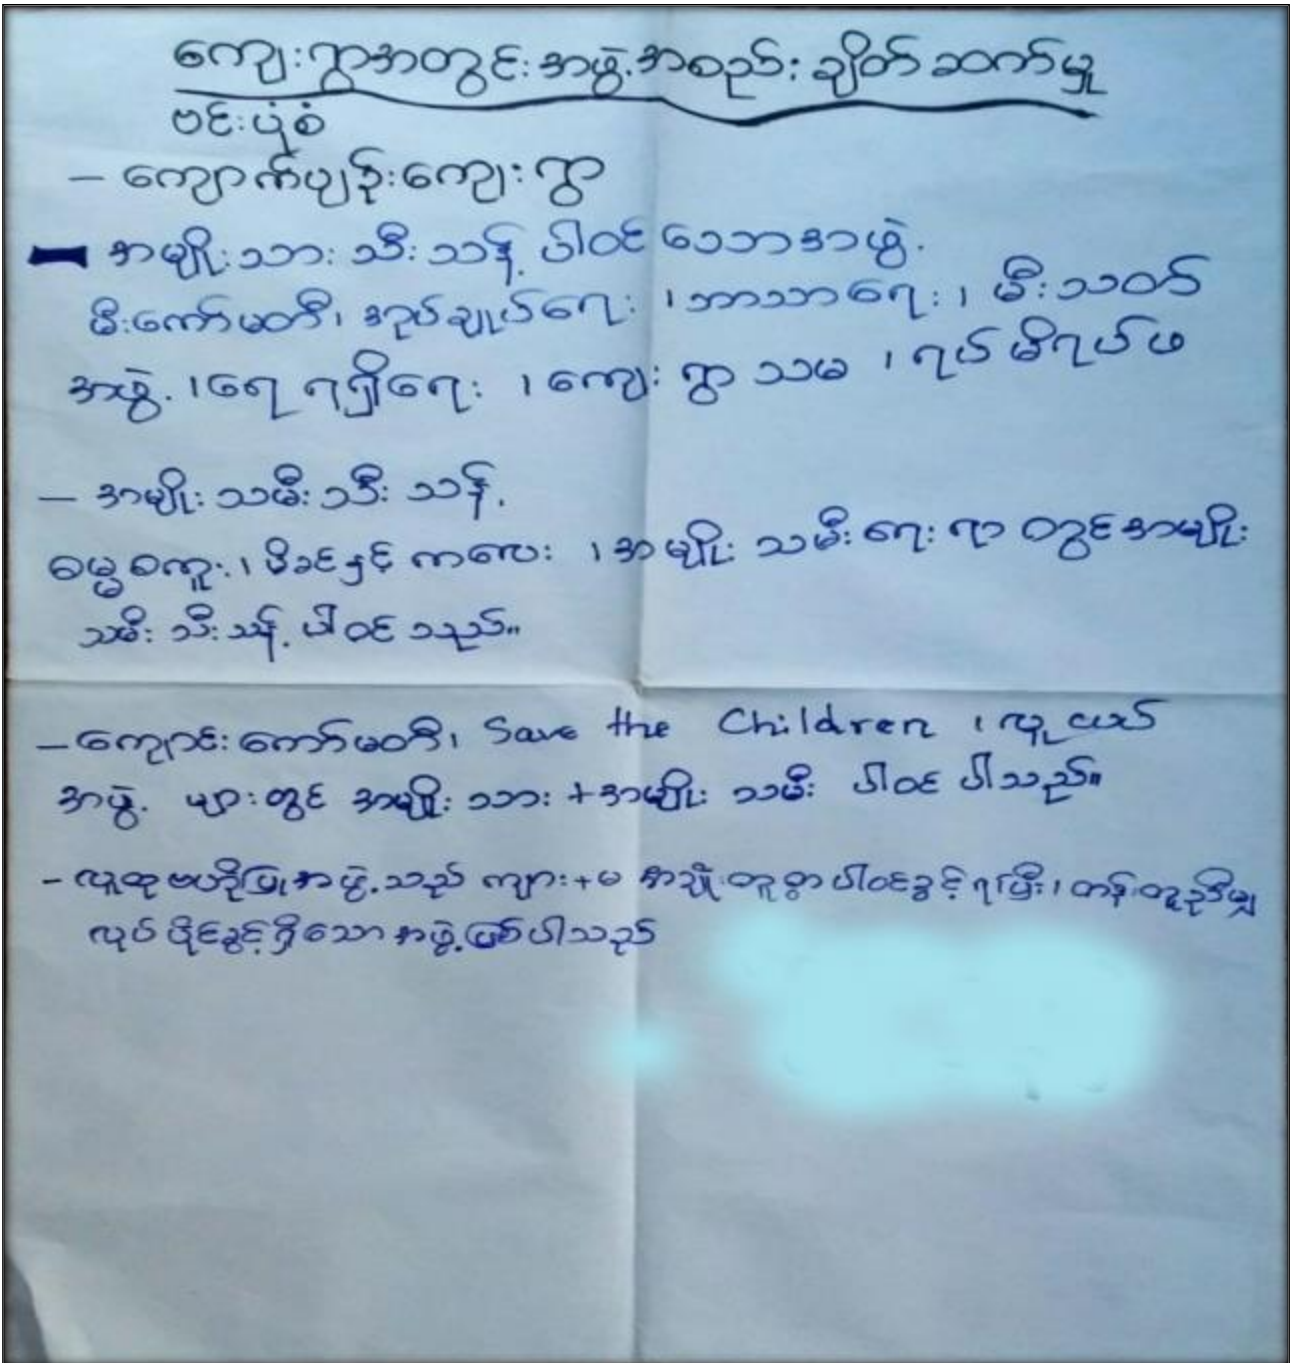 ကျေးရွာအတွင်းအဖွဲ့အစည်းချိတ်ဆက်မှု
ဗင်းပုံစံ
– ကျောက်ပျဉ်းကျေးရွာ
– အမျိုးသားသီးသန့်ပါဝင်သောအဖွဲ့
မီးကော်မတီ၊ အုပ်ချုပ်ရေး၊ ဘာသာရေး၊ မီးသတ်
အဖွဲ့၊ ရေရရှိရေး၊ ကျေးရွာသမ၊ ရပ်မိရပ်ဖ
– အမျိုးသမီးသီးသန့်
ဓမ္မစကူး၊ မိခင်နှင့်ကလေး၊ အမျိုးသမီးရေးရာတွင်အမျိုး
သမီးသီးသန့်ပါဝင်သည်။
– ကျောင်းကော်မတီ၊ Save the Children ၊ လူငယ်
အဖွဲ့များတွင် အမျိုးသား + အမျိုးသမီး ပါဝင်ပါသည်။
- လူထုဗဟိုပြုအဖွဲ့သည် ကျား+မ အချိုးတူစွာပါဝင်ခွင့်ရပြီး၊ တန်းတူညီမျှ
လုပ်ပိုင်ခွင့်ရှိသောအဖွဲ့ဖြစ်ပါသည်